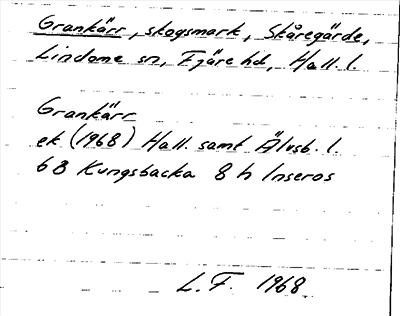 Grankärr, skogsmark, Skåregärde,
Lindome sn, Fjäre hd, Hall. l.
Grankärr
ek (1968) Hall. samt Älvsb. l.
6B Kungsbacka 8 h Inseros
L.F. 1968